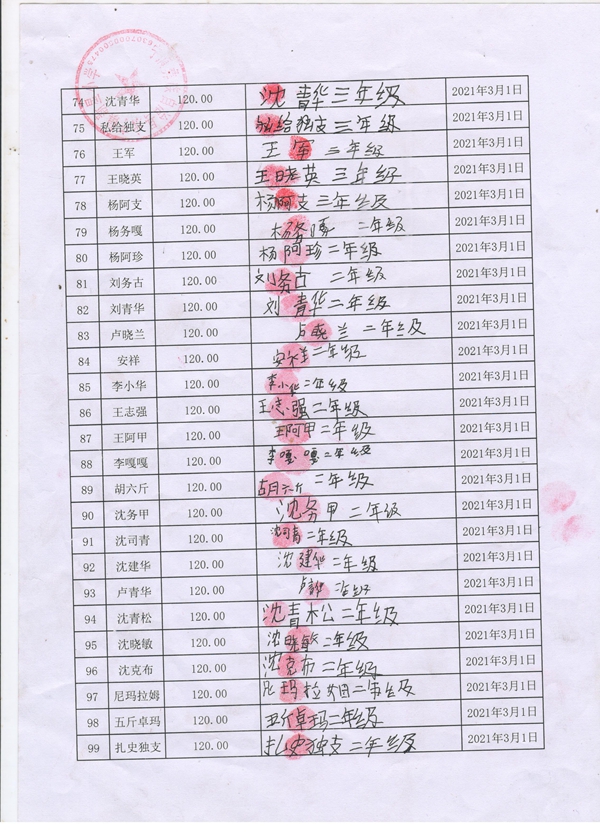 74 沈青华 120.00 沈青华三年级 2021年3月1日
75 私给独支 120.00 私给独支三年级 2021年3月1日
76 王军 120.00 王军 三年级 2021年3月1日
77 王晓英 120.00 王晓英 三年级 2021年3月1日
78 杨阿支 120.00 杨阿支三年级 2021年3月1日
79 杨务嘎 120.00 杨务嘎 二年级 2021年3月1日
80 杨阿珍 120.00 杨阿珍二年级 2021年3月1日
81 刘务古 120.00 刘务古 二年级 2021年3月1日
82 刘青华 120.00 刘青华二年级 2021年3月1日
83 卢晓兰 120.00 卢晓兰 二年级 2021年3月1日
84 安祥 120.00 安祥二年级 2021年3月1日
85 李小华 120.00 李小华二年级 2021年3月1日
86 王志强 120.00 王志强二年级 2021年3月1日
87 王阿甲 120.00 王阿甲二年级 2021年3月1日
88 李嘎嘎 120.00 李嘎嘎二年级 2021年3月1日
89 胡六斤 120.00 胡六斤 二年级 2021年3月1日
90 沈务甲 120.00 沈务甲 二年级 2021年3月1日
91 沈司青 120.00 沈司青二年级 2021年3月1日
92 沈建华 120.00 沈建华二年级 2021年3月1日
93 卢青华 120.00 卢青华 2021年3月1日
94 沈青松 120.00 沈青松二年级 2021年3月1日
95 沈晓敏 120.00 沈晓敏二年级 2021年3月1日
96 沈克布 120.00 沈克布二年级 2021年3月1日
97 尼玛拉姆 120.00 尼玛拉姆二年级 2021年3月1日
98 五斤卓玛 120.00 五斤卓玛二年级 2021年3月1日
99 扎史独支 120.00 扎史独支二年级 2021年3月1日